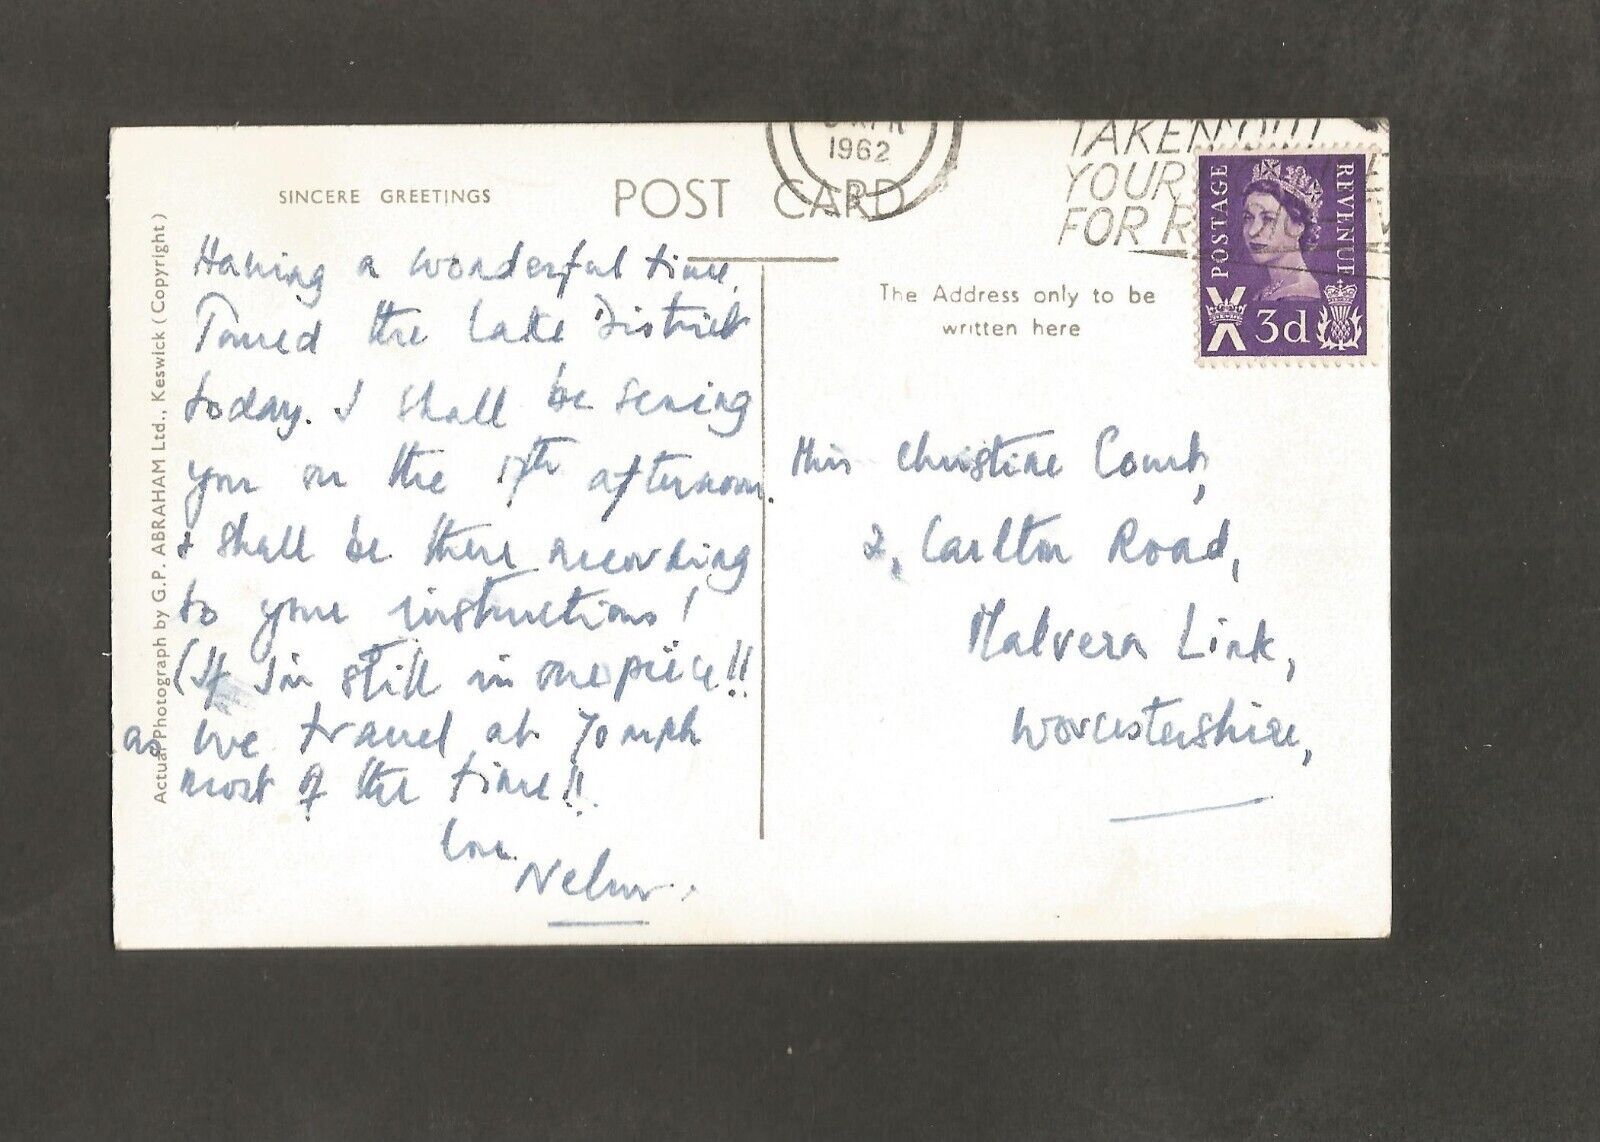 1962
TAKEN OUT
YOUR
FOR R
POSTAGE
REVENUE
3d
SINCERE GREETINGS
POST CARD
The Address only to be
written here
Actual Photograph by G.P. ABRAHAM Ltd., Keswick (Copyright)
Having a wonderful time.
Toured the Lake District
today. I shall be seeing
you on the 17th afternoon.
I shall be there according
to your instructions!
(If I'm still in one piece!!
as we travel at 70 mph
most of the time!!
Love
Miss Christine
2, Carlton Road,
Malvern Link,
Worcestershire,